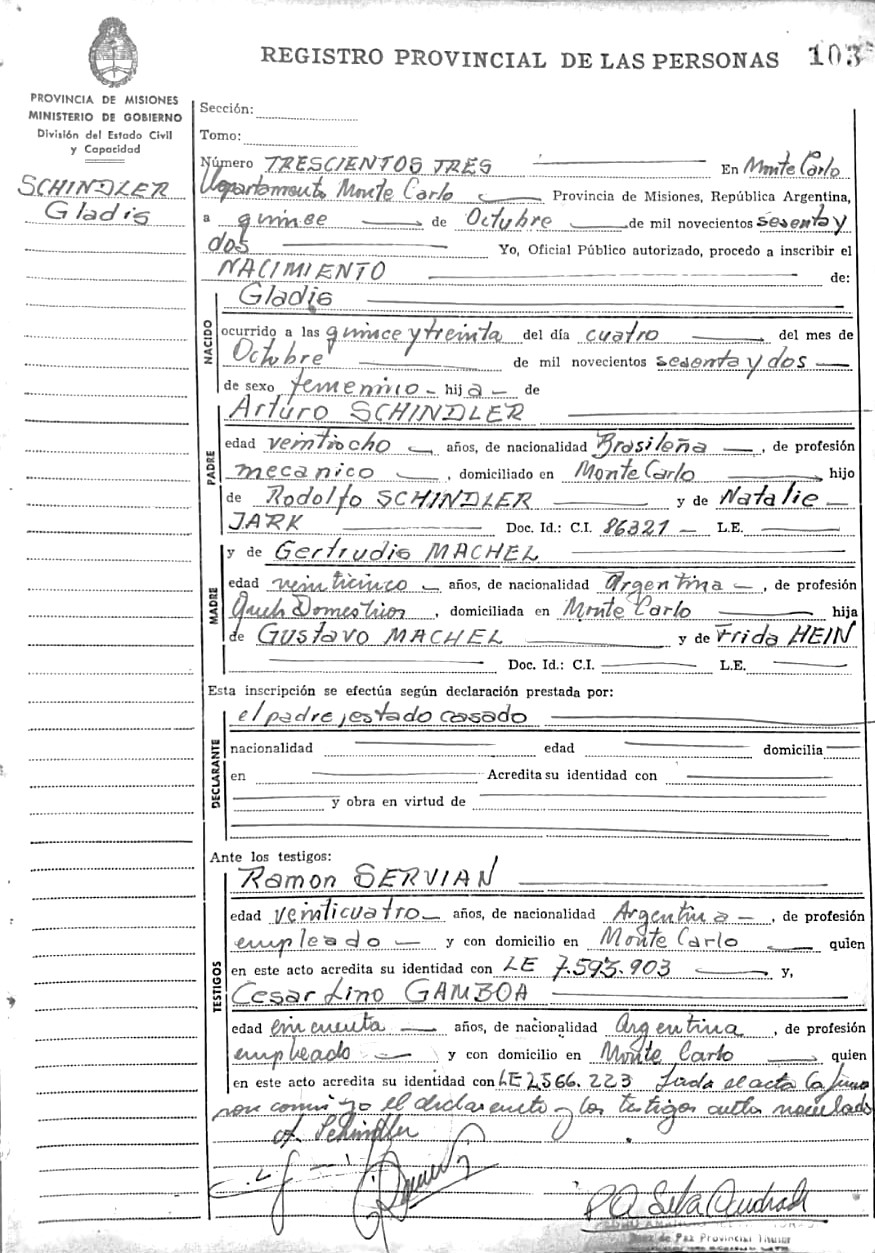 REGISTRO PROVINCIAL DE LAS PERSONAS 103
PROVINCIA DE MISIONES
MINISTERIO DE GOBIERNO
División del Estado Civil
y Capacidad
SCHINDLER
Gladis
Sección:
Tomo:
Número TRESCIENTOS TRES En Monte Carlo
Departamento Monte Carlo Provincia de Misiones, República Argentina,
a quince de Octubre de mil novecientos sesenta y
dos Yo, Oficial Público autorizado, procedo a inscribir el
NACIMIENTO de:
NACIDO
Gladis
ocurrido a las quince y treinta del día cuatro del mes de
Octubre de mil novecientos sesenta y dos
de sexo femenino hija de
Arturo SCHINDLER
PADRE
edad veintiocho años, de nacionalidad Brasileña, de profesión
mecanico, domiciliado en Monte Carlo hijo
de Rodolfo SCHINDLER y de Natalie
JARK Doc. Id.: C.I. 86321 L.E.
y de Gertrudis MACHEL
MADRE
edad veinticinco años, de nacionalidad Argentina, de profesión
Queh Domesticos, domiciliada en Monte Carlo hija
de Gustavo MACHEL y de Frida HEIN
Doc. Id.: C.I. L.E.
Esta inscripción se efectúa según declaración prestada por:
el padre, estado casado
DECLARANTE
nacionalidad edad domicilia
en Acredita su identidad con
y obra en virtud de
Ante los testigos:
Ramon SERVIAN
TESTIGOS
edad veinticuatro años, de nacionalidad Argentina, de profesión
empleado y con domicilio en Monte Carlo quien
en este acto acredita su identidad con LE 7.593.903 y,
Cesar Lino GAMBOA
edad cincuenta años, de nacionalidad Argentina, de profesión
empleado y con domicilio en Monte Carlo quien
en este acto acredita su identidad con LE 2566.223 Leida el acta la firma
ron conmigo el declarante y los testigos
A. Schindler
Juez de Paz Provincial Titular